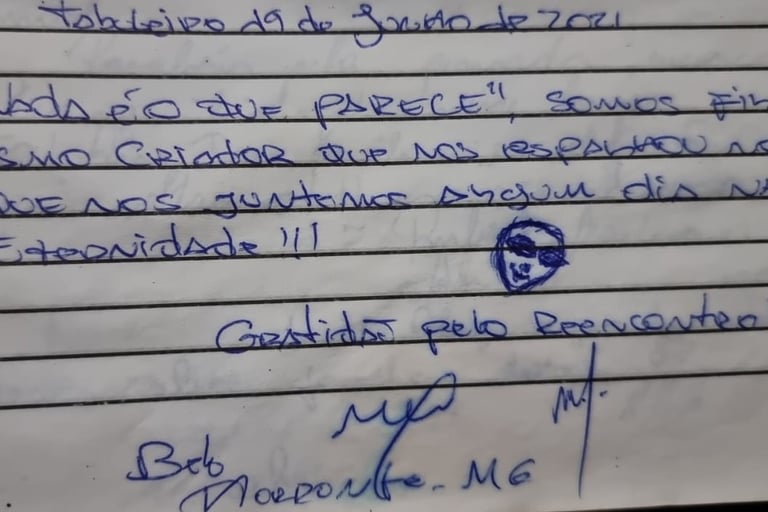 Tabuleiro 19 de Junho de 2021
ADA É O QUE PARECE", SOMOS
SMO CRIADOR QUE NOS ESPALHOU
QUE NOS JUNTEMOS ALGUM DIA
ETERNIDADE !!!
Gratidão pelo Reencontro
M.J.
Belo
Horizonte - MG